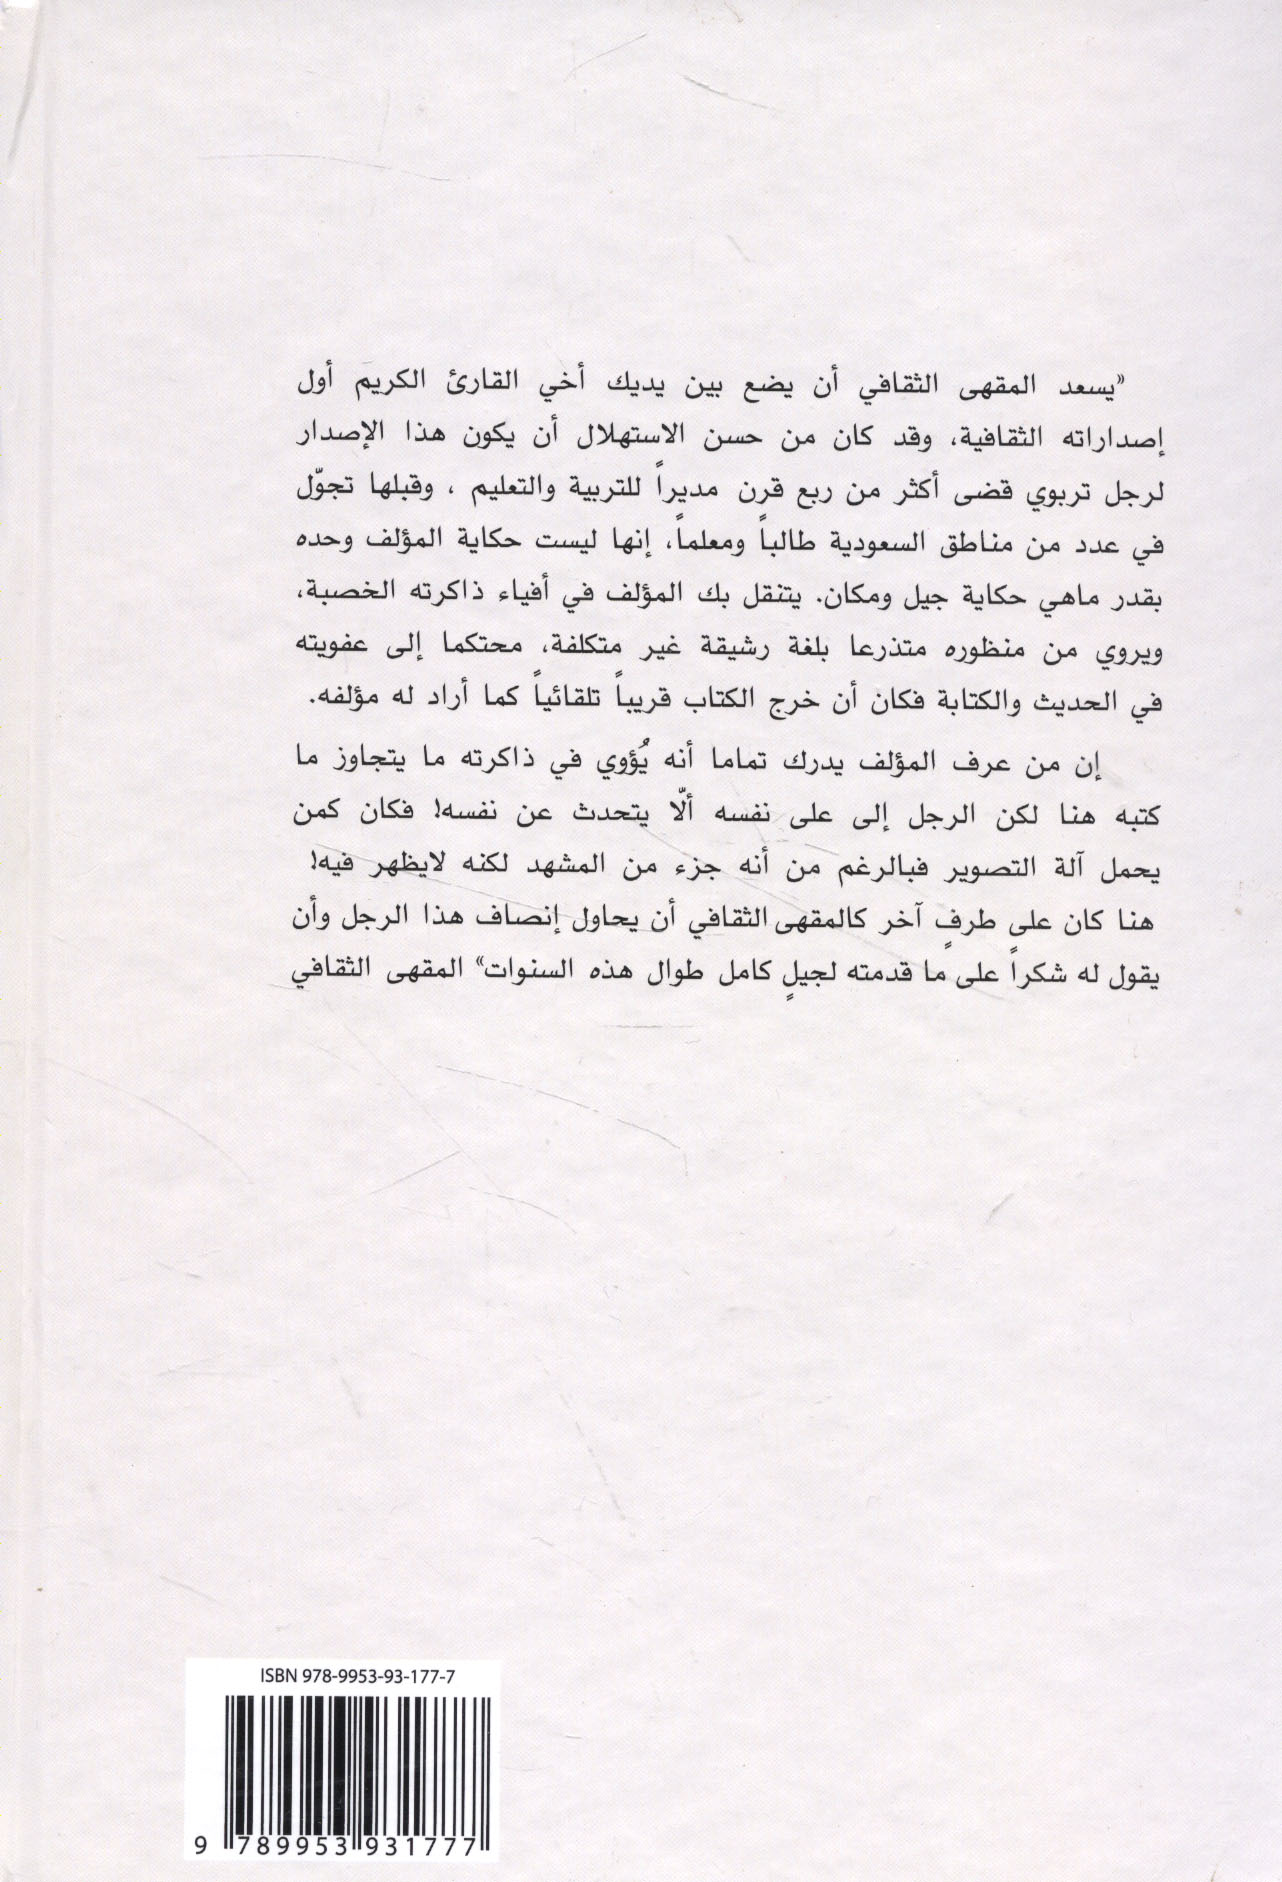 ”يسعد المقهى الثقافي أن يضع بين يديك أخي القارئ الكريم أول
إصداراته الثقافية، وقد كان من حسن الاستهلال أن يكون هذا الإصدار
لرجل تربوي قضى أكثر من ربع قرن مديراً للتربية والتعليم ، وقبلها تجوّل
في عدد من مناطق السعودية طالباً ومعلماً، إنها ليست حكاية المؤلف وحده
بقدر ماهي حكاية جيل ومكان. يتنقل بك المؤلف في أفياء ذاكرته الخصبة،
ويروي من منظوره متذرعا بلغة رشيقة غير متكلفة، محتكما إلى عفويته
في الحديث والكتابة فكان أن خرج الكتاب قريباً تلقائياً كما أراد له مؤلفه.
إن من عرف المؤلف يدرك تماما أنه يُؤوي في ذاكرته ما يتجاوز ما
كتبه هنا لكن الرجل إلى على نفسه ألّا يتحدث عن نفسه! فكان كمن
يحمل آلة التصوير فبالرغم من أنه جزء من المشهد لكنه لايظهر فيه!
هنا كان على طرفٍ آخر كالمقهى الثقافي أن يحاول إنصاف هذا الرجل وأن
يقول له شكراً على ما قدمته لجيلٍ كامل طوال هذه السنوات“ المقهى الثقافي
ISBN 978-9953-93-177-7
9 789953 931777